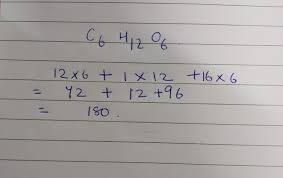 C₆ H₁₂ O₆
12×6 + 1×12 +16×6
= 72 + 12 +96
= 180.